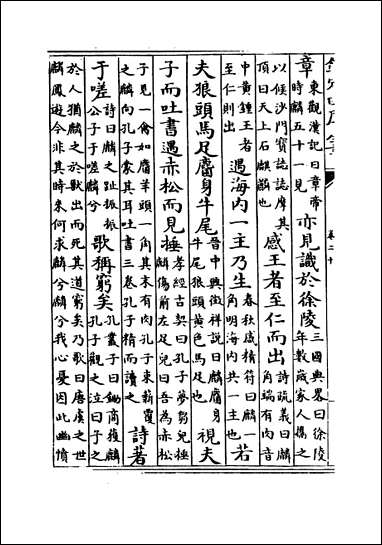 章東觀漢記曰章帝時麟五十一見亦見識於徐陵三國典畧曰徐陵年數歲家人攜之
以候沙門寶誌誌摩其頂曰天上石麒麟也感王者至仁而出詩疏義曰麟角端有肉音
中黄鍾王者至仁則出遇海内一主乃生春秋感精符曰麟一角明海内共一主也若
夫狼頭馬足麕身牛尾晉中興徵祥説曰麟麕身牛尾狼頭黄色馬足也視夫
子而吐書遇赤松而見捶孝經古契曰孔子夢芻兒捶麟傷前左足兒曰吾為赤松
子見一禽如麕羊頭一角其末有肉孔子束薪覆之麟向孔子蒙其耳吐書三卷孔子精而讀之詩著
于嗟詩曰麟之趾振振公子于嗟麟兮歌稱窮矣孔叢子曰鋤商獲麟孔子觀之泣曰子之
於人猶麟之於獸出而死其道窮矣乃歌曰唐虞之世麟鳳遊今非其時来何求麟兮麟兮我心憂因此幽憤
卷二十